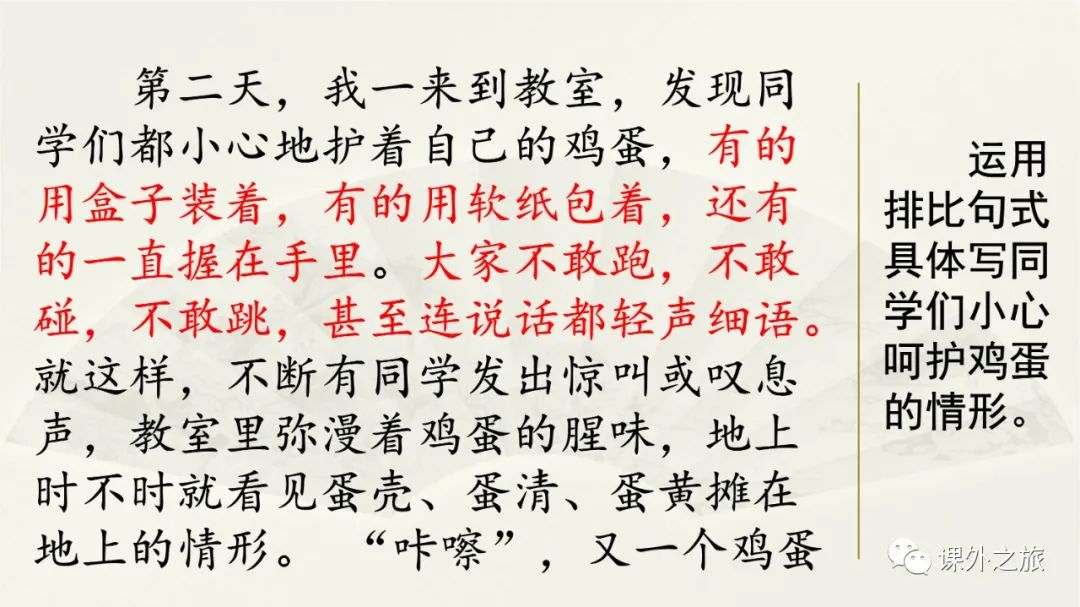 第二天，我一来到教室，发现同
学们都小心地护着自己的鸡蛋，有的
用盒子装着，有的用软纸包着，还有
的一直握在手里。大家不敢跑，不敢
碰，不敢跳，甚至连说话都轻声细语。
就这样，不断有同学发出惊叫或叹息
声，教室里弥漫着鸡蛋的腥味，地上
时不时就看见蛋壳、蛋清、蛋黄摊在
地上的情形。“咔嚓”，又一个鸡蛋
运用
排比句式
具体写同
学们小心
呵护鸡蛋
的情形。
课外之旅